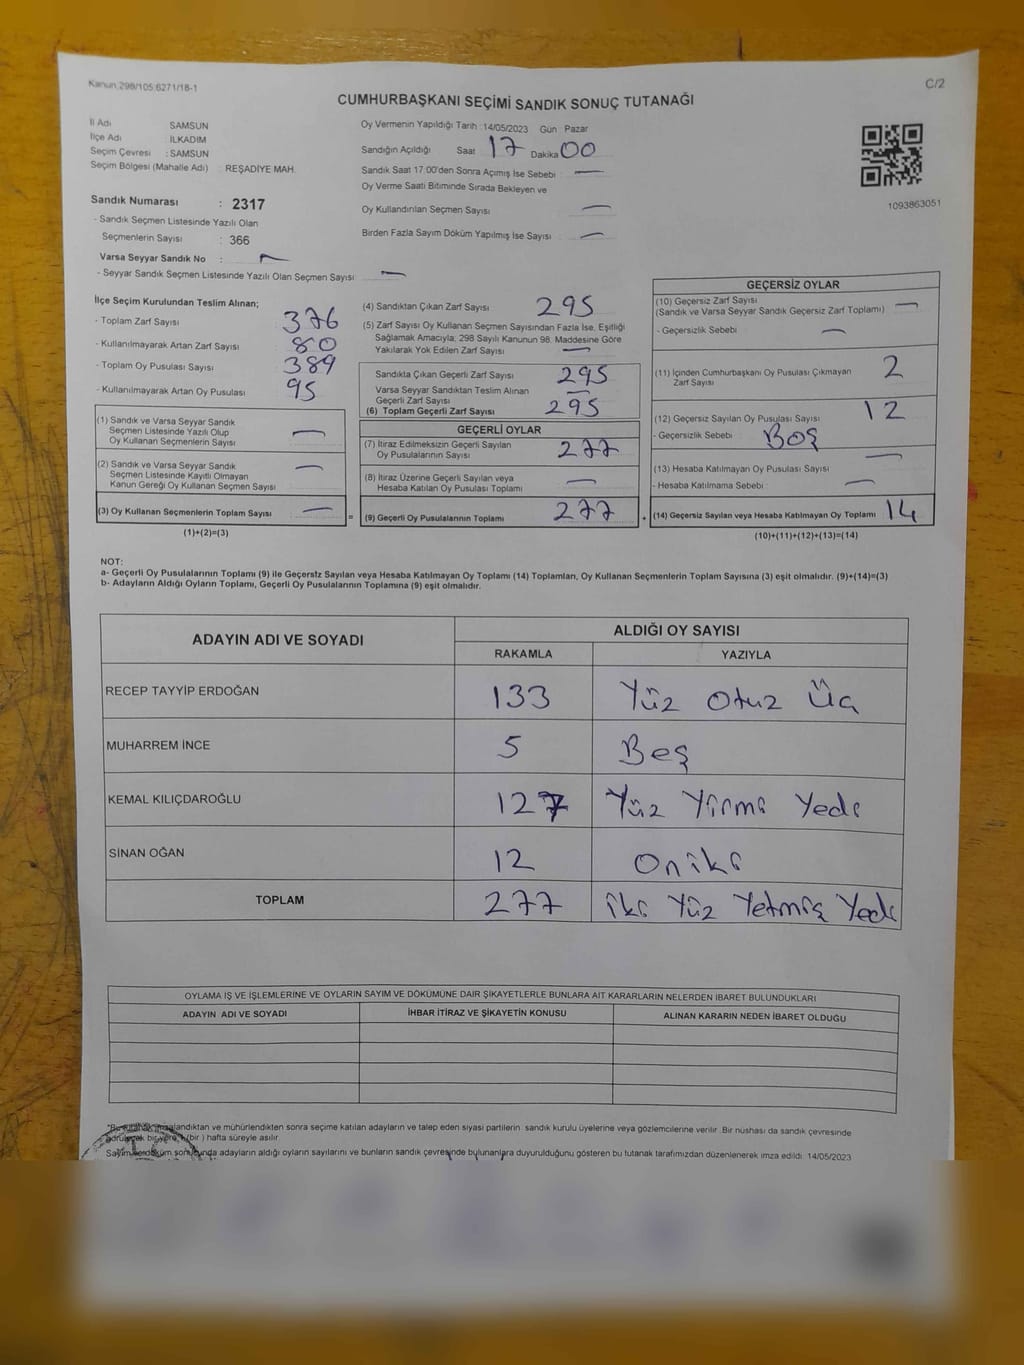 Kanun 298/105 6271/18-1
C/2
CUMHURBAŞKANI SEÇİMİ SANDIK SONUÇ TUTANAĞI
İl Adı SAMSUN
İlçe Adı İLKADIM
Seçim Çevresi : SAMSUN
Seçim Bölgesi (Mahalle Adı) : REŞADİYE MAH.
Sandık Numarası : 2317
- Sandık Seçmen Listesinde Yazılı Olan
Seçmenlerin Sayısı : 366
Varsa Seyyar Sandık No :
- Seyyar Sandık Seçmen Listesinde Yazılı Olan Seçmen Sayısı
Oy Vermenin Yapıldığı Tarih :14/05/2023 Gün Pazar
Sandığın Açıldığı Saat 17 Dakika 00
Sandık Saat 17:00'den Sonra Açımış İse Sebebi :
Oy Verme Saati Bitiminde Sırada Bekleyen ve
Oy Kullandırılan Seçmen Sayısı
Birden Fazla Sayım Döküm Yapılmış İse Sayısı
1093863051
İlçe Seçim Kurulundan Teslim Alınan;
- Toplam Zarf Sayısı 376
- Kullanılmayarak Artan Zarf Sayısı 80
- Toplam Oy Pusulası Sayısı 389
- Kullanılmayarak Artan Oy Pusulası 95
(1) Sandık ve Varsa Seyyar Sandık
Seçmen Listesinde Yazılı Olup
Oy Kullanan Seçmenlerin Sayısı
(2) Sandık ve Varsa Seyyar Sandık
Seçmen Listesinde Kayıtlı Olmayan
Kanun Gereği Oy Kullanan Seçmen Sayısı
(3) Oy Kullanan Seçmenlerin Toplam Sayısı
(1)+(2)=(3)
(4) Sandıktan Çıkan Zarf Sayısı 295
(5) Zarf Sayısı Oy Kullanan Seçmen Sayısından Fazla İse, Eşitliği
Sağlamak Amacıyla; 298 Sayılı Kanunun 98. Maddesine Göre
Yakılarak Yok Edilen Zarf Sayısı
Sandıkla Çıkan Geçerli Zarf Sayısı 295
Varsa Seyyar Sandıktan Teslim Alınan
Geçerli Zarf Sayısı
(6) Toplam Geçerli Zarf Sayısı 295
GEÇERLİ OYLAR
(7) İtiraz Edilmeksizin Geçerli Sayılan
Oy Pusulalarının Sayısı 277
(8) İtiraz Üzerine Geçerli Sayılan veya
Hesaba Katılan Oy Pusulası Toplamı
= (9) Geçerli Oy Pusulalarının Toplamı 277 +
GEÇERSİZ OYLAR
(10) Geçersiz Zarf Sayısı
(Sandık ve Varsa Seyyar Sandık Geçersiz Zarf Toplamı)
- Geçersizlik Sebebi
(11) İçinden Cumhurbaşkanı Oy Pusulası Çıkmayan
Zarf Sayısı 2
(12) Geçersiz Sayılan Oy Pusulası Sayısı 12
- Geçersizlik Sebebi Boş
(13) Hesaba Katılmayan Oy Pusulası Sayısı
- Hesaba Katılmama Sebebi :
(14) Geçersiz Sayılan veya Hesaba Katılmayan Oy Toplamı 14
(10)+(11)+(12)+(13)=(14)
NOT:
a- Geçerli Oy Pusulalarının Toplamı (9) ile Geçersiz Sayılan veya Hesaba Katılmayan Oy Toplamı (14) Toplamları, Oy Kullanan Seçmenlerin Toplam Sayısına (3) eşit olmalıdır. (9)+(14)=(3)
b- Adayların Aldığı Oyların Toplamı, Geçerli Oy Pusulalarının Toplamına (9) eşit olmalıdır.
ADAYIN ADI VE SOYADI ALDIĞI OY SAYISI
RAKAMLA YAZIYLA
RECEP TAYYİP ERDOĞAN 133 Yüz Otuz Üç
MUHARREM İNCE 5 Beş
KEMAL KILIÇDAROĞLU 127 Yüz Yirmi Yedi
SİNAN OĞAN 12 Oniki
TOPLAM 277 iki Yüz Yetmiş Yedi
OYLAMA İŞ VE İŞLEMLERİNE VE OYLARIN SAYIM VE DÖKÜMÜNE DAİR ŞİKAYETLERLE BUNLARA AİT KARARLARIN NELERDEN İBARET BULUNDUKLARI
ADAYIN ADI VE SOYADI İHBAR İTİRAZ VE ŞİKAYETİN KONUSU ALINAN KARARIN NEDEN İBARET OLDUĞU
imzalandıktan ve mühürlendikten sonra seçime katılan adayların ve talep eden siyasi partilerin sandık kurulu üyelerine veya gözlemcilerine verilir. Bir nüshası da sandık çevresinde
(bir ) hafta süreyle asılır.
adayların aldığı oyların sayılarını ve bunların sandık çevresinde bulunanlara duyurulduğunu gösteren bu tutanak tarafımızdan düzenlenerek imza edildi. 14/05/2023